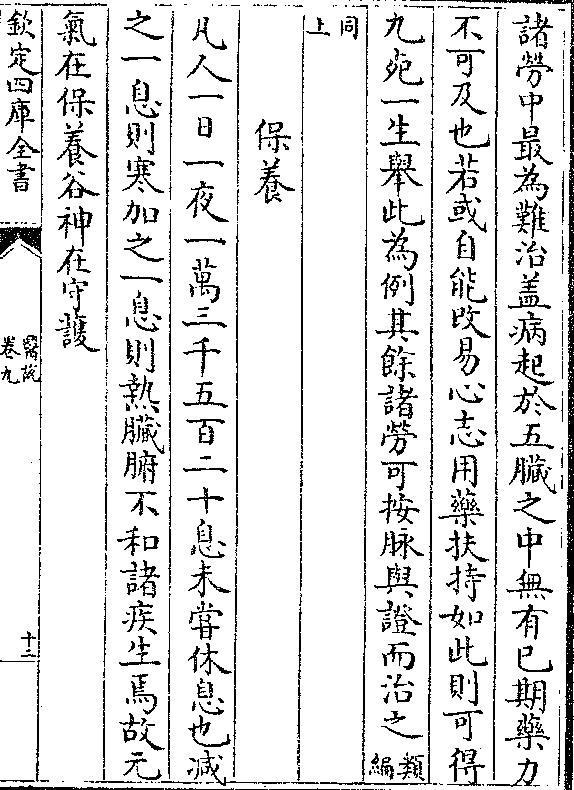 諸勞中最為難治盖病起於五臟之中無有已期藥力
不可及也若或自能改易心志用藥扶持如此則可得
九死一生舉此為例其餘諸勞可按脉與證而治之類編
同上
保養
凡人一日一夜一萬三千五百二十息未嘗休息也减
之一息則寒加之一息則熱臟腑不和諸疾生焉故元
氣在保養谷神在守護
欽定四庫全書
醫說
卷九
十二